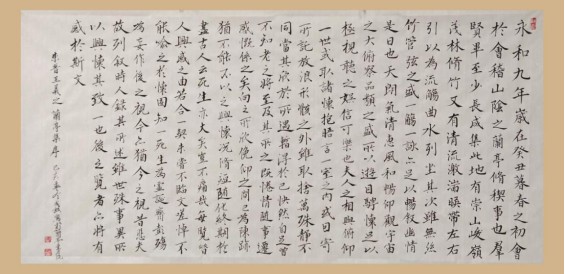 永和九年歲在癸丑暮春之初會
於會稽山陰之蘭亭脩稧事也羣
賢畢至少長咸集此地有崇山峻領
茂林脩竹又有清流激湍暎帶左右
引以為流觴曲水列坐其次雖無絲
竹管弦之盛一觴一詠亦足以暢敘幽情
是日也天朗氣清惠風和暢仰觀宇宙
之大俯察品類之盛所以遊目騁懷足以
極視聽之娛信可樂也夫人之相與俯仰
一世或取諸懷抱悟言一室之內或因寄
所託放浪形骸之外雖取捨萬殊靜不
同當其欣於所遇暫得於己快然自足
不知老之將至及其所之既惓情隨事遷
感慨係之矣向之所欣俛仰之間已為陳跡
猶不能不以之興懷況脩短隨化終期於
盡古人云死生亦大矣豈不痛哉每覽昔
人興感之由若合一契未嘗不臨文嗟悼不
能喻之於懷固知一死生為虛誕齊彭殤
為妄作後之視今亦猶今之視昔悲夫
故列敘時人錄其所述雖世殊事異所
以興懷其致一也後之覽者亦將有
感於斯文
東晉王羲之蘭亭集序